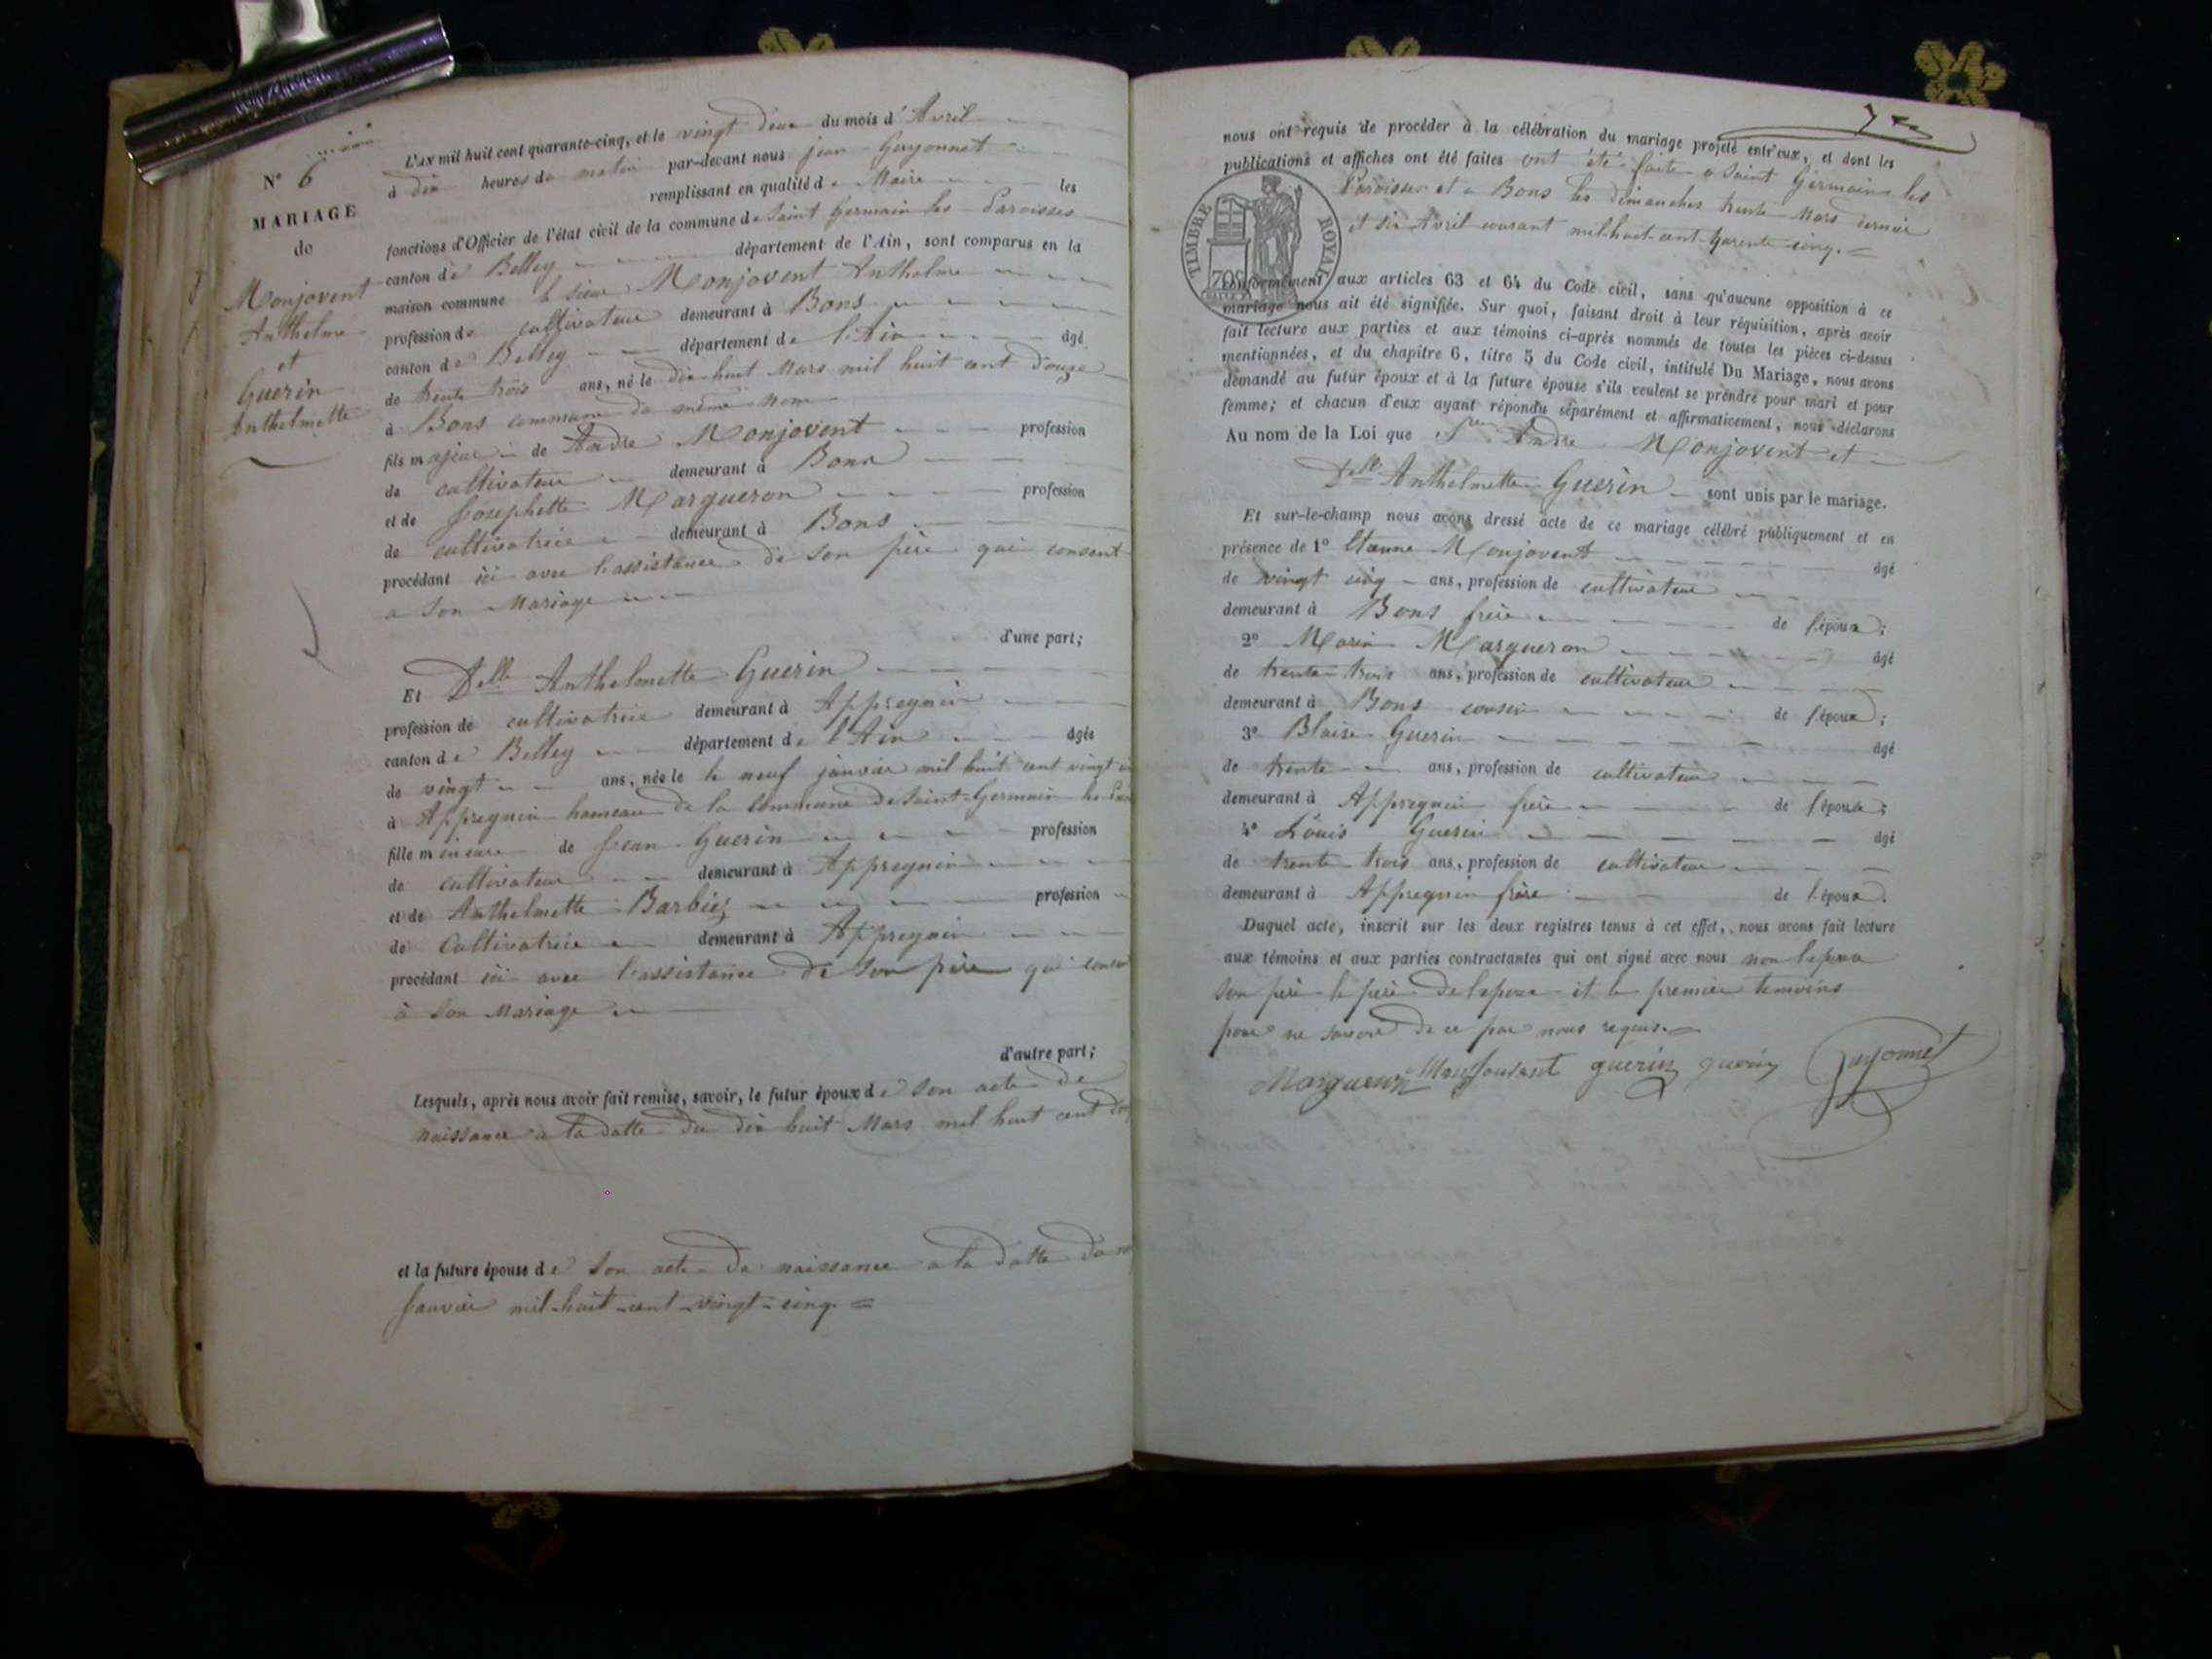 N° 6
MARIAGE
de
Monjovent
Anthelme
et
Guerin
Anthelmette
L'AN mil huit cent quarante-cinq, et le vingt deux du mois d'Avril
à dix heures du matin par-devant nous jean Guyonnet
remplissant en qualité de Maire les
fonctions d'Officier de l'état civil de la commune de Saint Germain les Paroisses
canton de Belley département de l'Ain, sont comparus en la
maison commune le sieur Monjovent Anthelme
profession de cultivateur demeurant à Bons
canton de Belley département de l'Ain âgé
de trente trois ans, né le dix-huit Mars mil huit cent douze
à Bons commune du même nom
fils majeur de Andre Monjovent profession
de cultivateur demeurant à Bons
et de Josephette Margueron profession
de cultivatrice demeurant à Bons
procédant ici avec l'assistance de son père qui consent
a son Mariage
d'une part;
Et Delle Anthelmette Guerin
profession de cultivatrice demeurant à Appregnin
canton de Belley département de l'Ain âgée
de vingt ans, née le le neuf janvier mil huit cent vingt
à Appregnin hameau de la Commune de Saint-Germain les
fille mineure de Jean Guerin profession
de cultivateur demeurant à Appregnin
et de Anthelmette Barbier profession
de Cultivatrice demeurant à Appregnin
procédant ici avec l'assistance de son père qui
à son Mariage
d'autre part;
Lesquels, après nous avoir fait remise, savoir, le futur époux de son acte de
naissance a la datte du dix huit Mars mil huit cent
et la future épouse de son acte de naissance a la datte du
Janvier mil-huit-cent-vingt-cinq. =
nous ont requis de procéder à la célébration du mariage projeté entr'eux, et dont les
publications et affiches ont été faites ont été faite a Saint Germain les
Paroisses et a Bons les dimanches trente Mars dernier
et six Avril courant mil-huit-cent-quarente-cinq. =
TIMBRE ROYAL
70c
conformément aux articles 63 et 64 du Code civil, sans qu'aucune opposition à ce
mariage nous ait été signifiée. Sur quoi, faisant droit à leur réquisition, après avoir
fait lecture aux parties et aux témoins ci-après nommés de toutes les pièces ci-dessus
mentionnées, et du chapitre 6, titre 5 du Code civil, intitulé Du Mariage, nous avons
demandé au futur époux et à la future épouse s'ils veulent se prendre pour mari et pour
femme; et chacun d'eux ayant répondu séparément et affirmativement, nous déclarons
Au nom de la Loi que Andre Monjovent et
Delle Anthelmette Guerin sont unis par le mariage.
Et sur-le-champ nous avons dressé acte de ce mariage célébré publiquement et en
présence de 1° Etienne Monjovent âgé
de vingt cinq ans, profession de cultivateur
demeurant à Bons frère de l'époux;
2° Marin Margueron âgé
de trente-trois ans, profession de cultivateur
demeurant à Bons cousin de l'époux;
3° Blaise Guerin âgé
de trente ans, profession de cultivateur
demeurant à Appregnin frère de l'épouse;
4° Louis Guerin âgé
de trente trois ans, profession de cultivateur
demeurant à Appregnin frère de l'épouse.
Duquel acte, inscrit sur les deux registres tenus à cet effet, nous avons fait lecture
aux témoins et aux parties contractantes qui ont signé avec nous non
son père le père de et le premier temoins
pour ne savoir de ce par nous requis.
Margueron guerin guerin Guyonnet